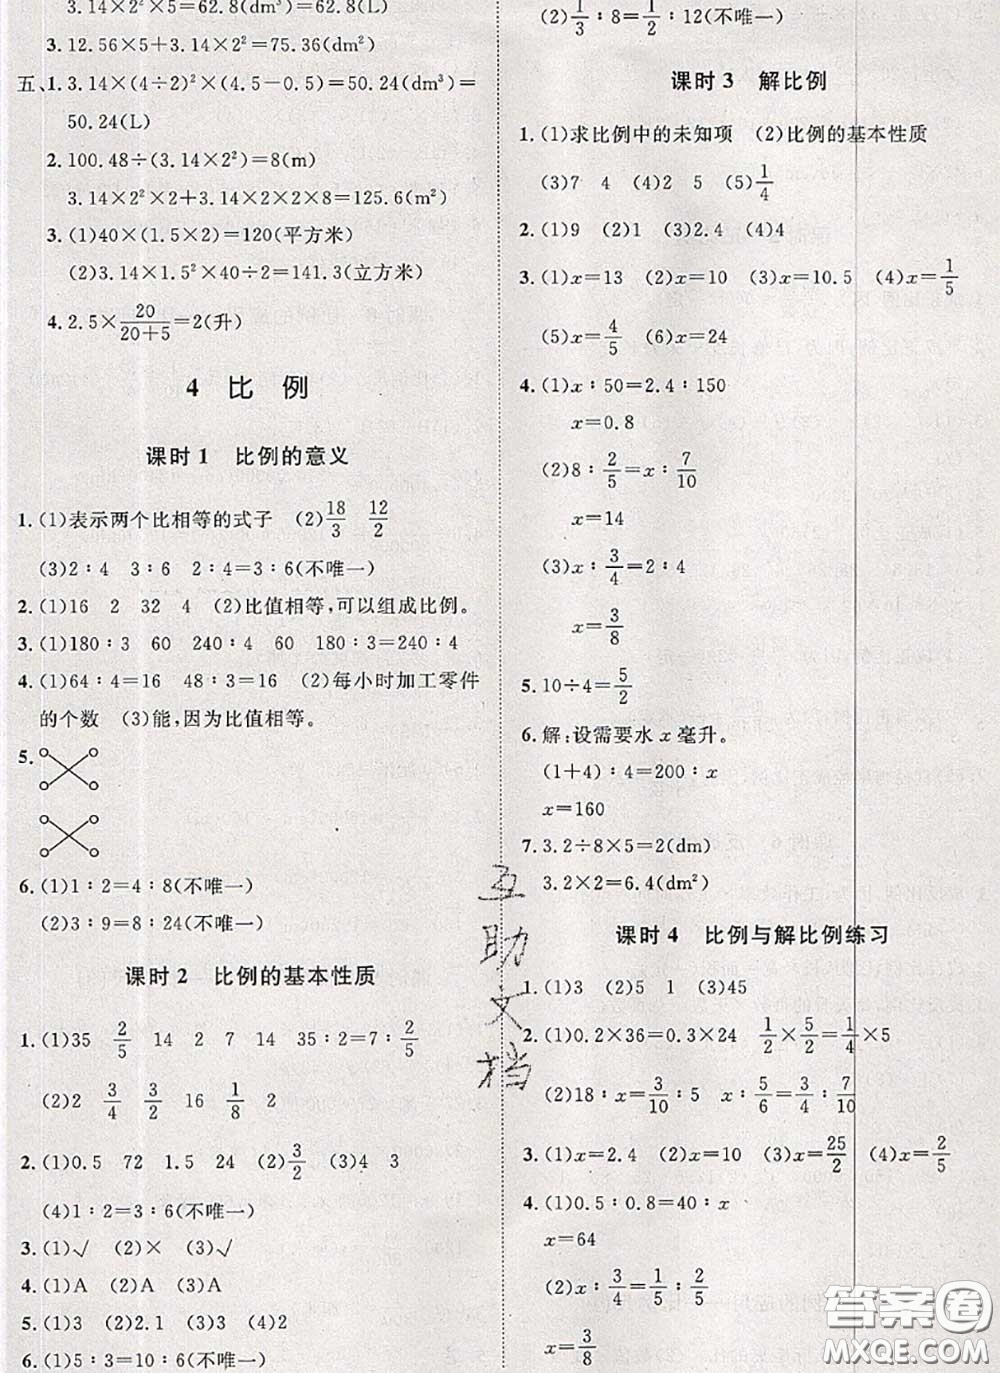 3.14×2²×5=62.8(dm³)=62.8(L)
3. 12.56×5+3.14×2²=75.36(dm²)
五、1. 3.14×(4÷2)²×(4.5－0.5)=50.24(dm³)=
50.24(L)
2. 100.48÷(3.14×2²)=8(m)
3.14×2²×2+3.14×2×2×8=125.6(m²)
3. (1)40×(1.5×2)=120(平方米)
(2)3.14×1.5²×40÷2=141.3(立方米)
4. 2.5×20/(20+5)=2(升)
4 比例
课时1 比例的意义
1. (1)表示两个比相等的式子 (2)18/3 12/2
(3)2∶4 3∶6 2∶4=3∶6(不唯一)
2. (1)16 2 32 4 (2)比值相等,可以组成比例。
3. (1)180∶3 60 240∶4 60 180∶3=240∶4
4. (1)64∶4=16 48∶3=16 (2)每小时加工零件
的个数 (3)能,因为比值相等。
5.
6. (1)1∶2=4∶8(不唯一)
(2)3∶9=8∶24(不唯一)
课时2 比例的基本性质
1. (1)35 2/5 14 2 7 14 35∶2=7∶2/5
(2)2 3/4 3/2 16 1/8 2
2. (1)0.5 72 1.5 24 (2)3/2 (3)4 3
(4)1∶2=3∶6(不唯一)
3. (1)√ (2)× (3)√
4. (1)A (2)A (3)A
5. (1)3 (2)2.1 (3)3 (4)2
6. (1)5∶3=10∶6(不唯一)
(2)1/3∶8=1/2∶12(不唯一)
课时3 解比例
1. (1)求比例中的未知项 (2)比例的基本性质
(3)7 4 (4)2 5 (5)1/4
2. (1)9 (2)1 (3)2.4 (4)4
3. (1)x=13 (2)x=10 (3)x=10.5 (4)x=1/5
(5)x=4/5 (6)x=24
4. (1)x∶50=2.4∶150
x=0.8
(2)8∶2/5=x∶7/10
x=14
(3)x∶3/4=2∶4
x=3/8
5. 10÷4=5/2
6. 解:设需要水x毫升。
(1+4)∶4=200∶x
x=160
7. 3.2÷8×5=2(dm)
3.2×2=6.4(dm²)
课时4 比例与解比例练习
1. (1)3 (2)5 1 (3)45
2. (1)0.2×36=0.3×24 1/2×5/2=1/4×5
(2)18∶x=3/10∶5 x∶5/6=3/4∶7/10
3. (1)x=2.4 (2)x=10 (3)x=25/2 (4)x=2/5
4. (1)0.5∶0.8=40∶x
x=64
(2)x∶3/4=1/5∶2/5
x=3/8
互助文档
答案圈
MXQE.COM